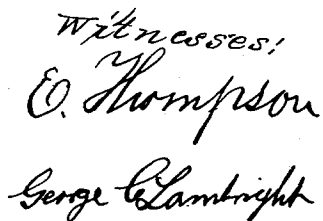 Witnesses:
E. Thompson
George C. Lambright